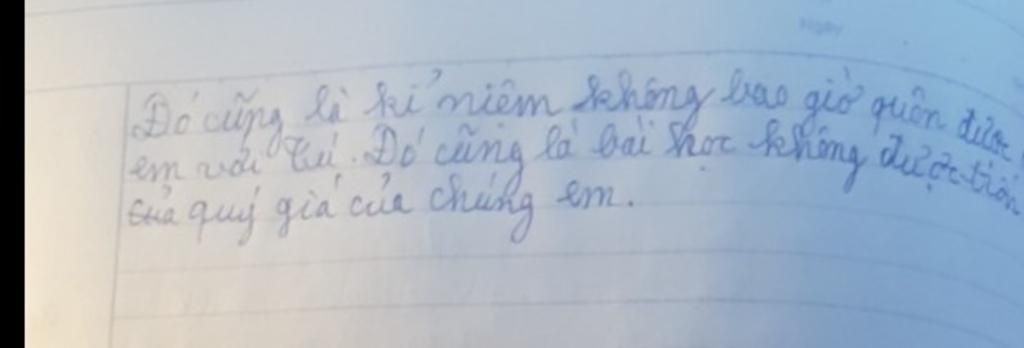 Đó cũng là kỉ niệm không bao giờ quên được
em với Tú. Đó cũng là bài học không được
quý giá của chúng em.